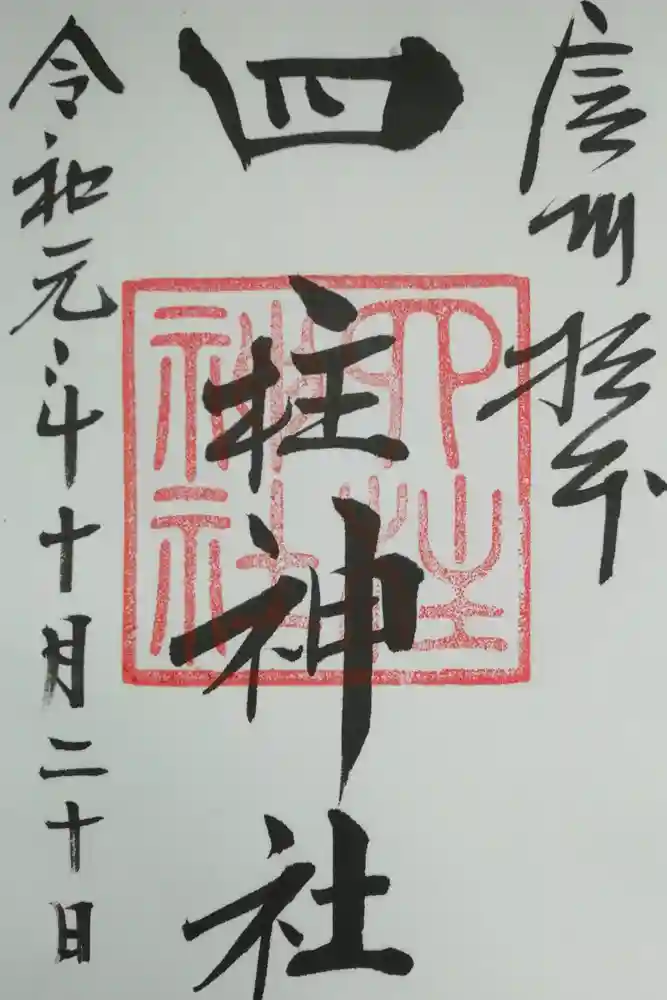 信州松本
四柱神社
四柱神社
令和元年十月二十日